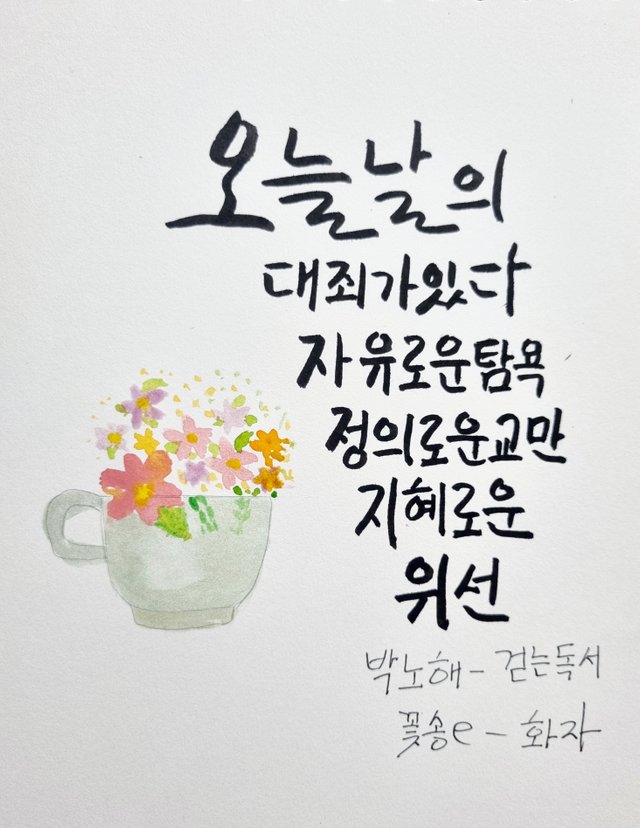 오늘날의
대죄가있다
자유로운탐욕
정의로운교만
지혜로운
위선
박노해-걷는독서
꽃송e-화자